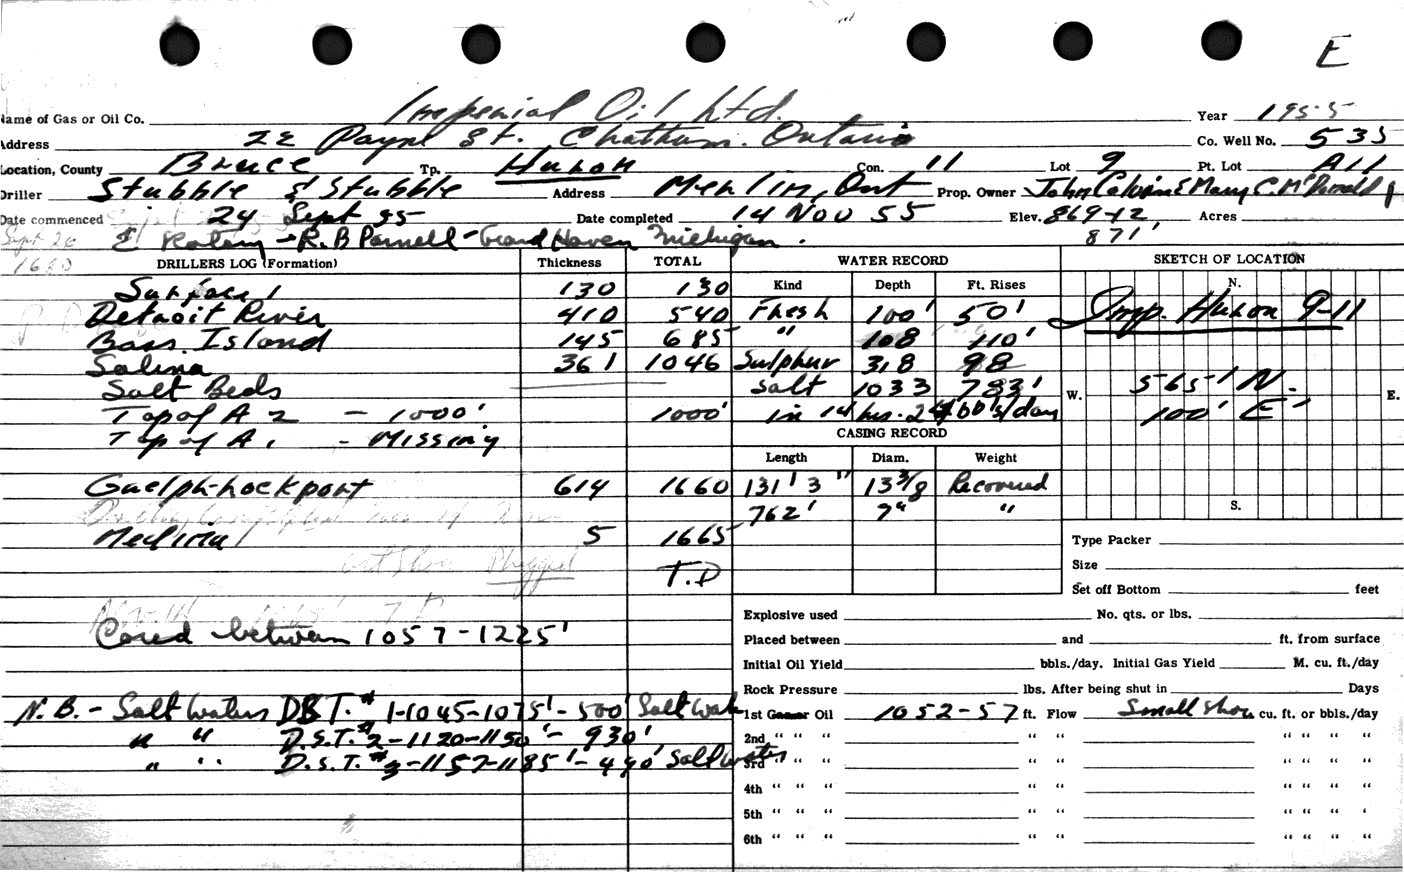 E
Name of Gas or Oil Co. Imperial Oil Ltd. Year 1955
Address 22 Payne St. Chatham. Ontario Co. Well No. 535
Location, County Bruce Tp. Huron Con. 11 Lot 9 Pt. Lot All
Driller Stubble & Stubble Address Merlin, Ont Prop. Owner John Calvin & Mary C. McDonald
Date commenced 24 Sept 55 Date completed 14 Nov 55 Elev. 869+2 Acres
Sept 26 & Rotary - R. B Parnell - Grand Haven Michigan. 871'
1620
DRILLERS LOG (Formation) Thickness TOTAL WATER RECORD SKETCH OF LOCATION
Kind Depth Ft. Rises N.
Surface 130 130
Detroit River 410 540 Fresh 100' 50' Imp. Huron 9-11
Bass Island 145 685 " 108 110'
Salina 361 1046 Sulphur 318 98
Salt Beds Salt 1033 783' 565' N.
W. E.
Top of A 2 - 1000' 1000' in 14 hrs. 100' E'
Top of A 1 - Missing CASING RECORD
Length Diam. Weight
Guelph-Lockport 614 1660 131' 3" 13 3/8 Recovered
762' 7" "
S.
Medina 5 1665
Type Packer
Plugged T.D
Size
Set off Bottom feet
Explosive used No. qts. or lbs.
Cored between 1057-1225'
Placed between and ft. from surface
Initial Oil Yield bbls./day. Initial Gas Yield M. cu. ft./day
Rock Pressure lbs. After being shut in Days
N.B. - Salt Waters D.S.T. #1-1045-1075' - 500' Salt Water
1st Oil 1052-57 ft. Flow Small Show cu. ft. or bbls./day
" " D.S.T. #2-1120-1150' - 930'
2nd " " " " " " " " "
" " D.S.T. #3-1157-1185' - 490' Salt Water
3rd " " " " " " " "
4th " " " " " " " " "
5th " " " " " " " " '
6th " " " " " " " " "